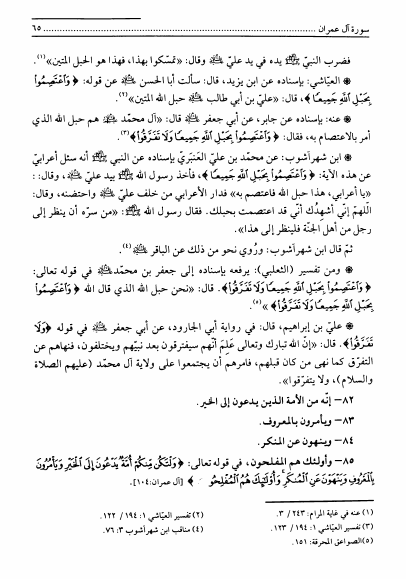 سورة آل عمران ........ ٦٥
فضرب النبيّ ﷺ يده في يد عليّ ﷺ وقال: «تمسّكوا بهذا، فهذا هو الحبل المتين»(١).
❋ العيّاشي: بإسناده عن ابن يزيد، قال: سألت أبا الحسن ﷺ عن قوله: ﴿وَاعْتَصِمُواْ
بِحَبْلِ اللَّهِ جَمِيعًا﴾، قال: «عليّ بن أبي طالب ﷺ حبل الله المتين»(٢).
❋ عنه: بإسناده عن جابر، عن أبي جعفر ﷺ قال: «آل محمّد ﷺ هم حبل الله الذي
أمر بالاعتصام به، فقال: ﴿وَاعْتَصِمُواْ بِحَبْلِ اللَّهِ جَمِيعًا وَلَا تَفَرَّقُواْ﴾(٣).
❋ ابن شهرآشوب: عن محمد بن عليّ العَنبَريّ بإسناده عن النبي ﷺ أنه سئل أعرابي
عن هذه الآية: ﴿وَاعْتَصِمُواْ بِحَبْلِ اللَّهِ جَمِيعًا﴾، فأخذ رسول الله ﷺ بيد عليّ ﷺ، وقال:
«يا أعرابي، هذا حبل الله فاعتصم به» فدار الأعرابي من خلف عليّ ﷺ واحتضنه، وقال:
اللّهمّ إنّي أشهدك أنّي قد اعتصمت بحبلك. فقال رسول الله ﷺ: «من سرّه أن ينظر إلى
رجل من أهل الجنّة فلينظر إلى هذا».
ثمّ قال ابن شهرآشوب: ورُوي نحو من ذلك عن الباقر ﷺ(٤).
❋ ومن تفسير (الثعلبي): يرفعه بإسناده إلى جعفر بن محمد ﷺ في قوله تعالى:
﴿وَاعْتَصِمُواْ بِحَبْلِ اللَّهِ جَمِيعًا وَلَا تَفَرَّقُواْ﴾. قال: «نحن حبل الله الذي قال الله ﴿وَاعْتَصِمُواْ
بِحَبْلِ اللَّهِ جَمِيعًا وَلَا تَفَرَّقُواْ﴾»(٥).
❋ عليّ بن إبراهيم، قال: في رواية أبي الجارود، عن أبي جعفر ﷺ في قوله ﴿وَلَا
تَفَرَّقُواْ﴾. قال: «إنّ الله تبارك وتعالى عَلِمَ أنّهم سيفترقون بعد نبيّهم ويختلفون، فنهاهم عن
التفرّق كما نهى من كان قبلهم، فأمرهم أن يجتمعوا على ولاية آل محمّد (عليهم الصلاة
والسلام)، ولا يتفرّقوا».
٨٢- إنّه من الأمة الذين يدعون إلى الخير.
٨٣- ويأمرون بالمعروف.
٨٤- وينهون عن المنكر.
٨٥- وأولئك هم المفلحون، في قوله تعالى: ﴿وَلْتَكُن مِّنكُمْ أُمَّةٌ يَدْعُونَ إِلَى الْخَيْرِ وَيَأْمُرُونَ
بِالْمَعْرُوفِ وَيَنْهَوْنَ عَنِ الْمُنكَرِ وَأُوْلَئِكَ هُمُ الْمُفْلِحُونَ﴾ [آل عمران:١٠٤].
(١) عنه في غاية المرام: ٢٤٣ / ٣.
(٢) تفسير العيّاشي ١: ١٩٤ / ١٢٢.
(٣) تفسير العيّاشي ١: ١٩٤ / ١٢٣.
(٤) مناقب ابن شهرآشوب ٣: ٧٦.
(٥) الصواعق المحرقة: ١٥١.